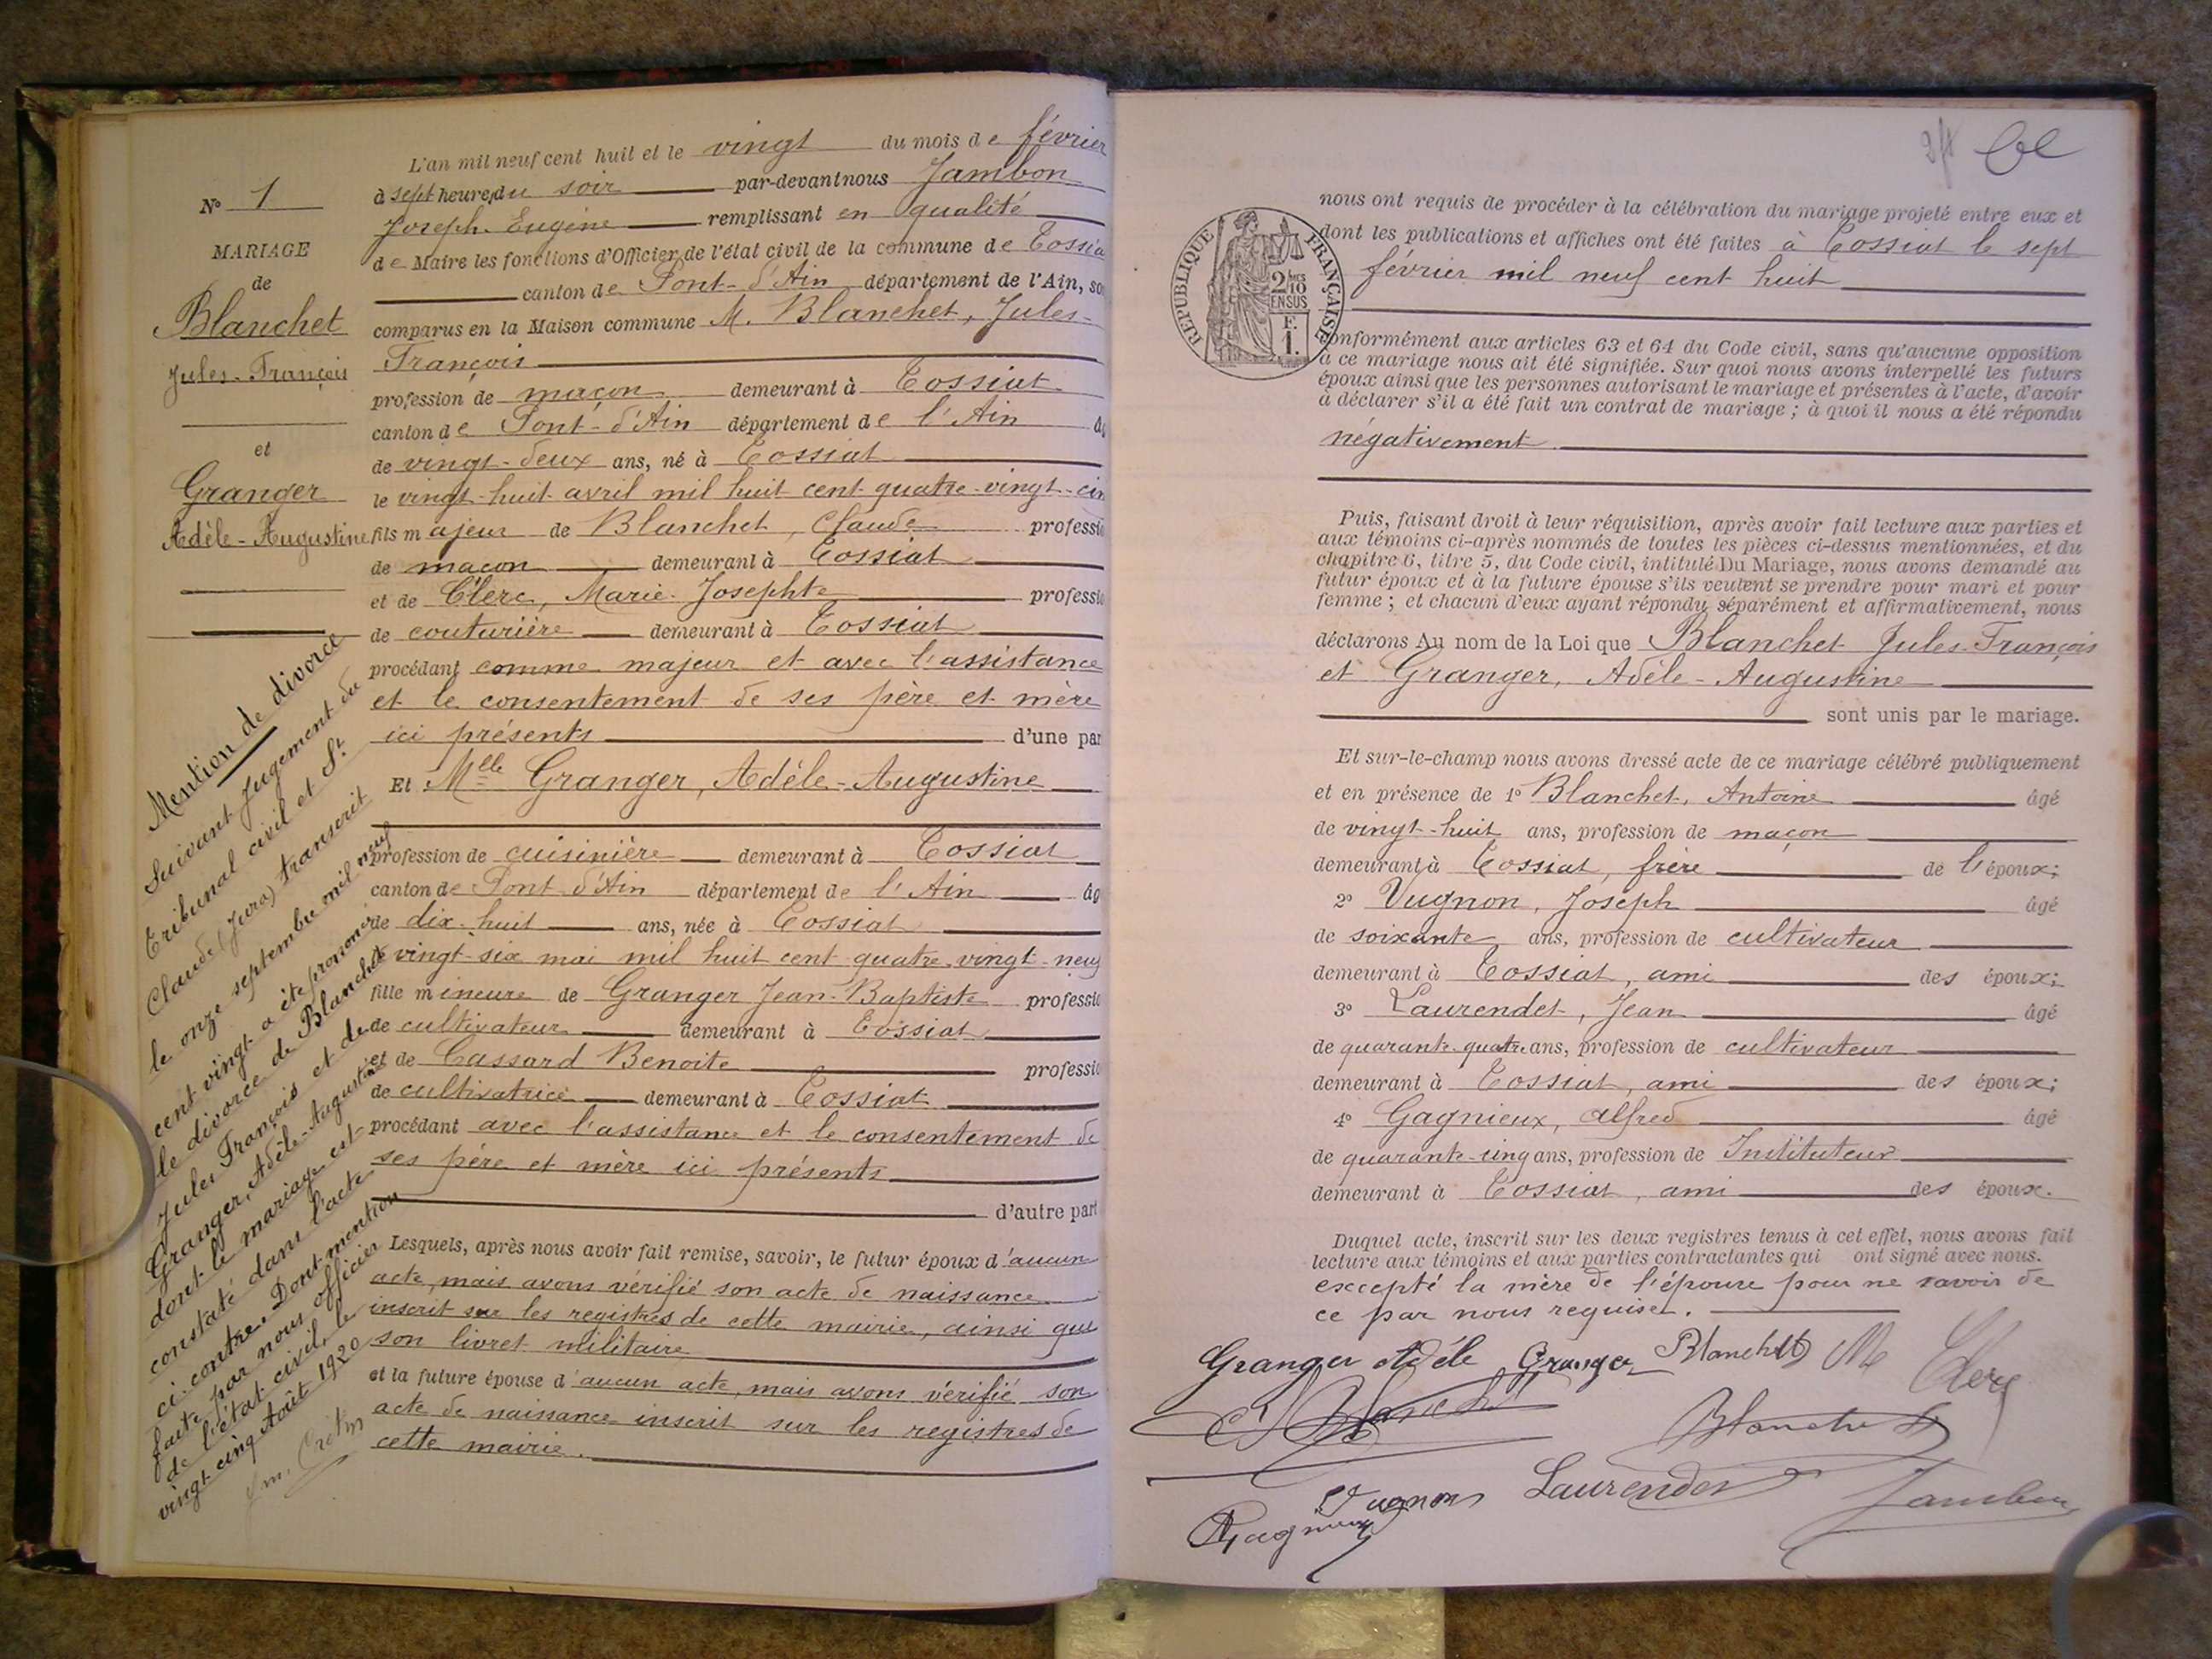 N° 1
MARIAGE
de
Blanchet
Jules-François
et
Granger
Adèle-Augustine
Mention de divorce
Suivant Jugement du
Tribunal civil et St
Claude (Jura) transcrit
le onze septembre mil neuf
cent vingt a été prononcé
le divorce de Blanchet
Jules François et de
Granger, Adèle-Augustine
dont le mariage est
constaté dans l'acte
ci-contre. Dont mention
faite par nous officier
de l'état civil, le
vingt cinq Août 1920
L'an mil neuf cent huit et le vingt du mois de février
à sept heures du soir par-devant nous Jambon
Joseph-Eugène remplissant en qualité
de Maire les fonctions d'Officier de l'état civil de la commune de Tossia
canton de Pont-d'Ain département de l'Ain, so
comparus en la Maison commune M. Blanchet, Jules-
François
profession de maçon demeurant à Tossiat
canton de Pont-d'Ain département de l'Ain âg
de vingt-deux ans, né à Tossiat
le vingt-huit avril mil huit cent quatre-vingt-cin
fils majeur de Blanchet, Claude professio
de maçon demeurant à Tossiat
et de Clerc, Marie-Josephte professio
de couturière demeurant à Tossiat
procédant comme majeur et avec l'assistance
et le consentement de ses père et mère
ici présents d'une par
Et Melle Granger, Adèle-Augustine
profession de cuisinière demeurant à Tossiat
canton de Pont-d'Ain département de l'Ain âg
de dix-huit ans, née à Tossiat
le vingt-six mai mil huit cent quatre-vingt-neuf
fille mineure de Granger Jean-Baptiste professio
de cultivateur demeurant à Tossiat
et de Cassard Benoite professio
de cultivatrice demeurant à Tossiat
procédant avec l'assistance et le consentement de
ses père et mère ici présents
d'autre part
Lesquels, après nous avoir fait remise, savoir, le futur époux d'aucun
acte, mais avons vérifié son acte de naissance
inscrit sur les registres de cette mairie, ainsi que
son livret militaire
et la future épouse d'aucun acte, mais avons vérifié son
acte de naissance inscrit sur les registres de
cette mairie.
nous ont requis de procéder à la célébration du mariage projeté entre eux et
dont les publications et affiches ont été faites à Tossiat le sept
février mil neuf cent huit
RÉPUBLIQUE FRANÇAISE
2/10
EN SUS
F.
1.
conformément aux articles 63 et 64 du Code civil, sans qu'aucune opposition
à ce mariage nous ait été signifiée. Sur quoi nous avons interpellé les futurs
époux ainsi que les personnes autorisant le mariage et présentes à l'acte, d'avoir
à déclarer s'il a été fait un contrat de mariage ; à quoi il nous a été répondu
négativement.
Puis, faisant droit à leur réquisition, après avoir fait lecture aux parties et
aux témoins ci-après nommés de toutes les pièces ci-dessus mentionnées, et du
chapitre 6, titre 5, du Code civil, intitulé Du Mariage, nous avons demandé au
futur époux et à la future épouse s'ils veulent se prendre pour mari et pour
femme ; et chacun d'eux ayant répondu séparément et affirmativement, nous
déclarons Au nom de la Loi que Blanchet Jules-François
et Granger, Adèle-Augustine
sont unis par le mariage.
Et sur-le-champ nous avons dressé acte de ce mariage célébré publiquement
et en présence de 1° Blanchet, Antoine âgé
de vingt-huit ans, profession de maçon
demeurant à Tossiat, frère de l'époux;
2° Vugnon, Joseph âgé
de soixante ans, profession de cultivateur
demeurant à Tossiat, ami des époux;
3° Laurendet, Jean âgé
de quarante-quatre ans, profession de cultivateur
demeurant à Tossiat, ami des époux;
4° Gagnieux, Alfred âgé
de quarante-cinq ans, profession de Instituteur
demeurant à Tossiat, ami des époux.
Duquel acte, inscrit sur les deux registres tenus à cet effet, nous avons fait
lecture aux témoins et aux parties contractantes qui ont signé avec nous.
excepté la mère de l'épouse pour ne savoir de
ce par nous requise.
Granger Adèle Granger Blanchet M Clerc
Blanchet
Vugnon Laurendet Jambon
Gagnieux